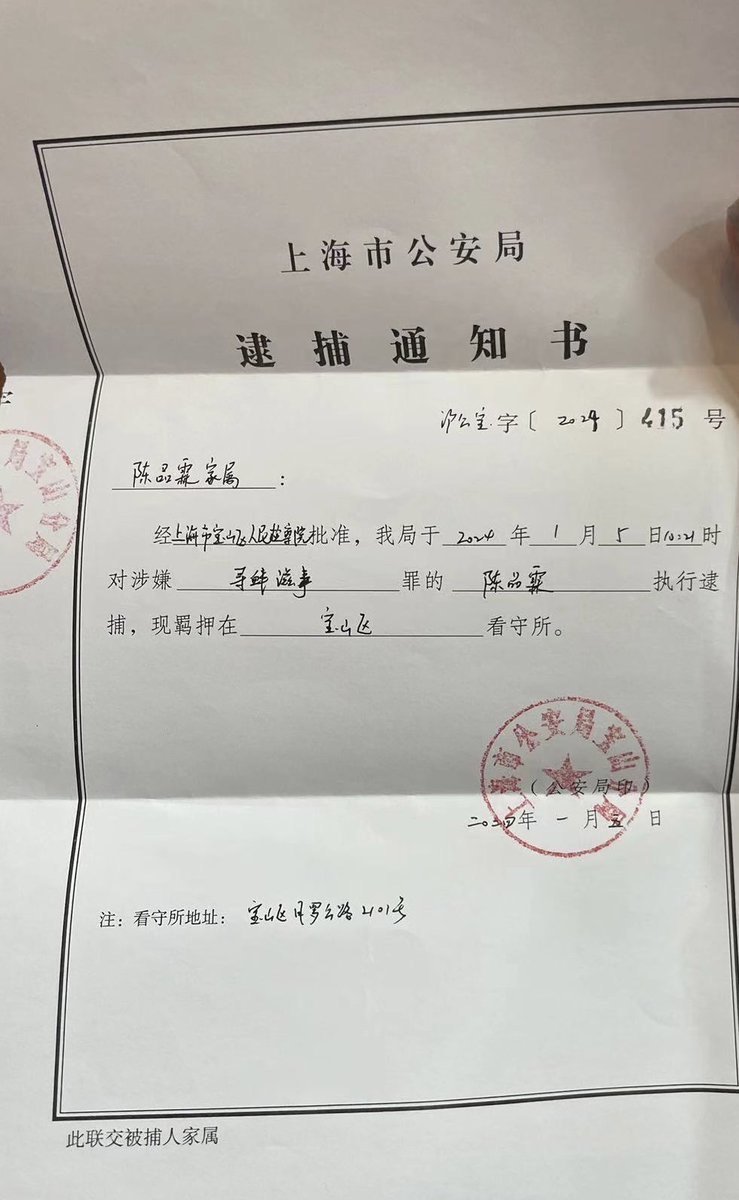 上海市公安局
逮捕通知书
沪公宝字〔2024〕415号
陈品霖家属：
经上海市宝山区人民检察院批准，我局于2024年1月5日10:21时
对涉嫌寻衅滋事罪的陈品霖执行逮
捕，现羁押在宝山区看守所。
上海市公安局宝山分局
（公安局印）
二〇二四年一月五日
注：看守所地址：宝山区月罗公路2101号
此联交被捕人家属